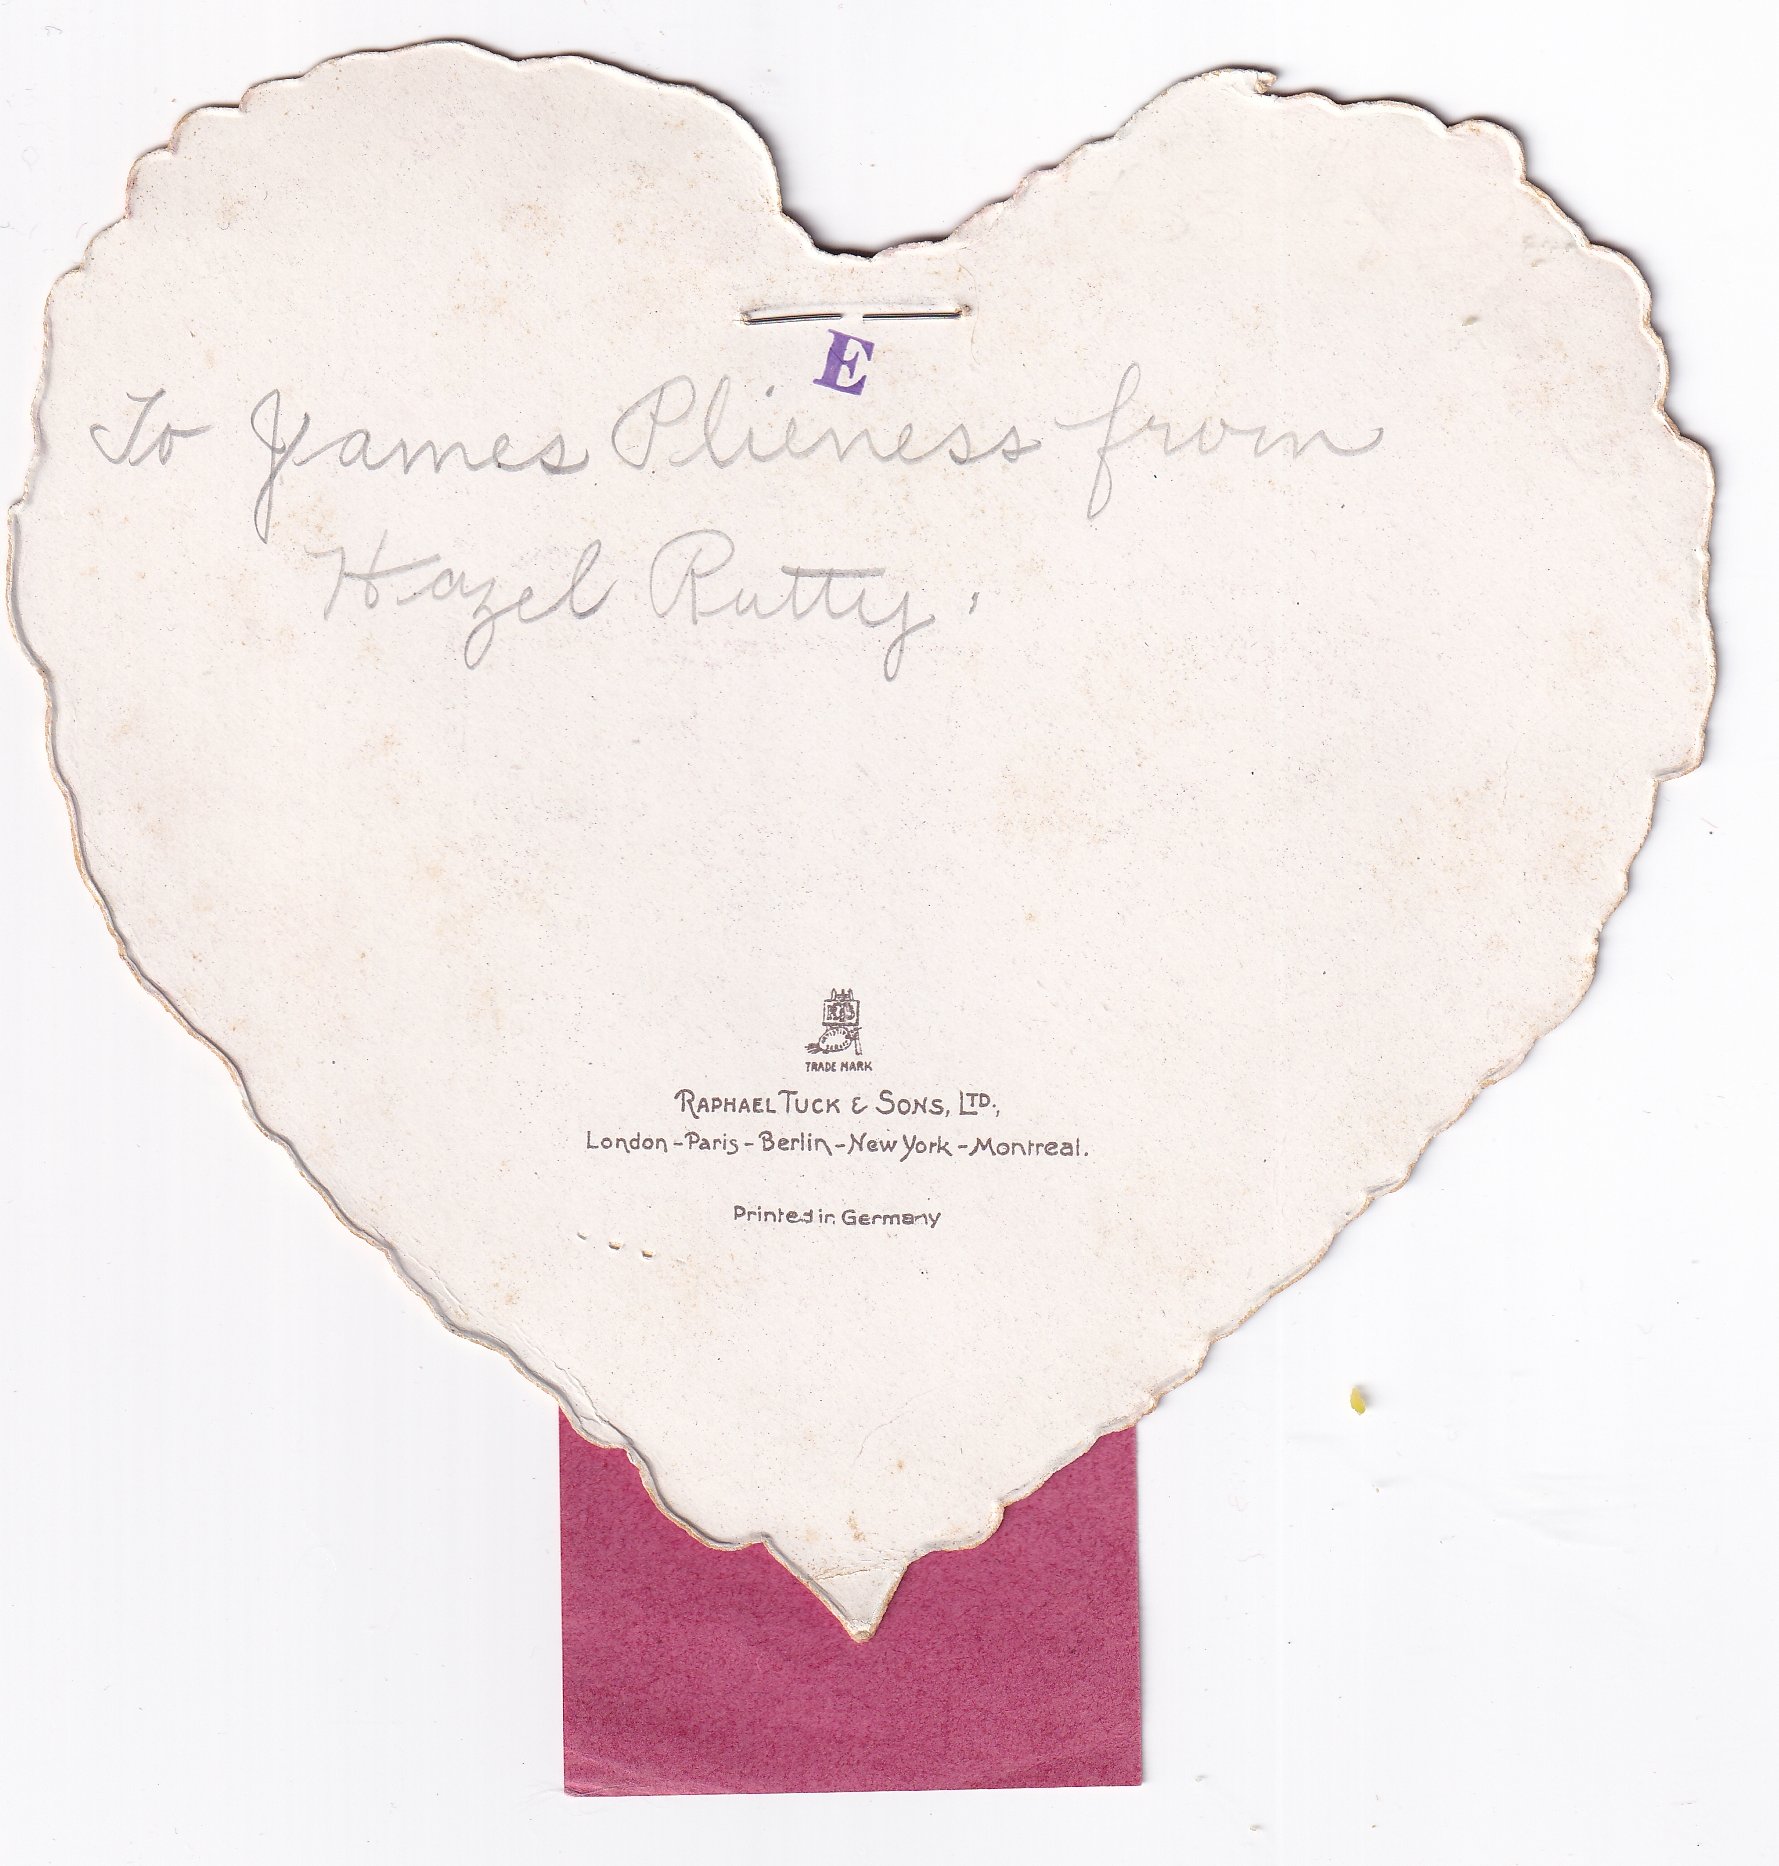 E
To James Plieness from
Hazel Rutty.
TRADE MARK
RAPHAEL TUCK & SONS, LTD.,
London-Paris-Berlin-New York-Montreal.
Printed in Germany